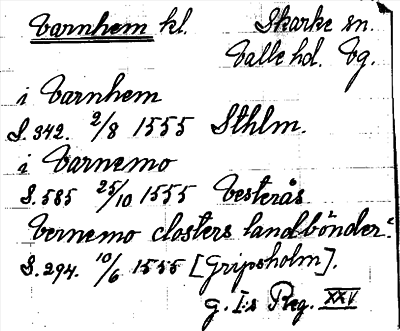 Varnhem kl. Skarke sn.
Valle hd. Vg.
i Varnhem
S. 342. 2/8 1555 Sthlm.
i Varnemo
S. 585 25/10 1555 Vesterås.
Vernemo closters landbönder.
S. 294. 10/6 1555 [Gripsholm].
G. I:s Reg. XXV